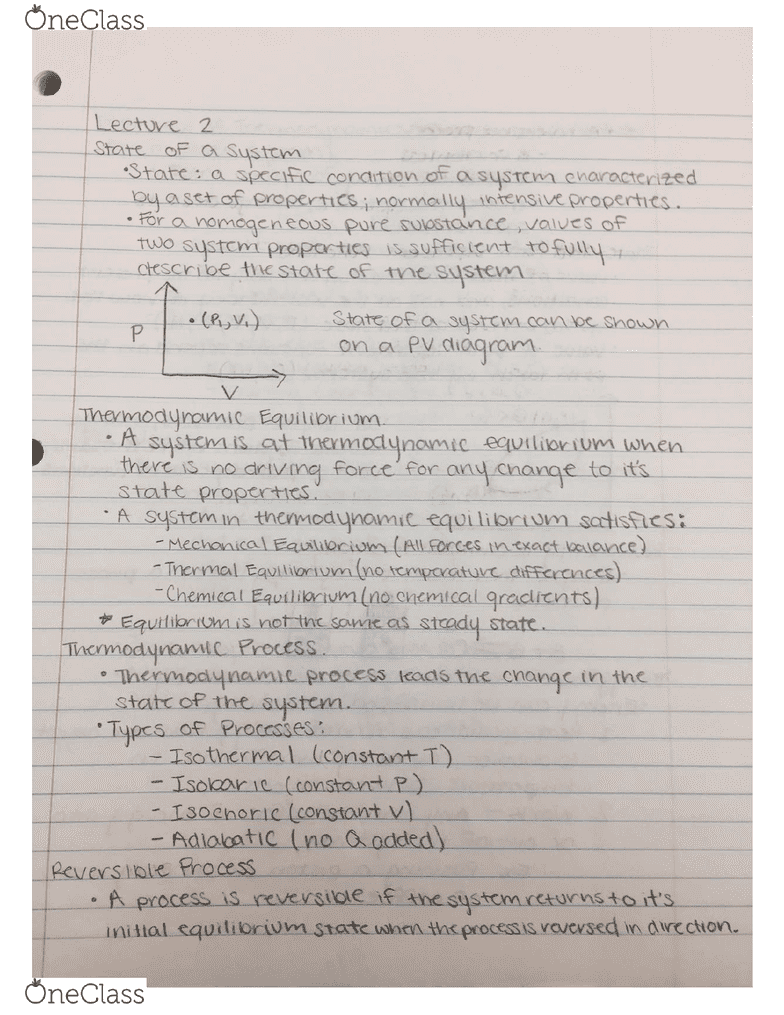 OneClass
Lecture 2
State of a System
•State: a specific condition of a system characterized
by a set of properties; normally intensive properties.
• For a homogeneous pure substance, values of
two system properties is sufficient to fully
describe the state of the system
P
• (P₁, V₁)
State of a system can be shown
on a PV diagram.
V
Thermodynamic Equilibrium.
• A system is at thermodynamic equilibrium when
there is no driving force for any change to it's
state properties.
• A system in thermodynamic equilibrium satisfies:
- Mechanical Equilibrium (All forces in exact balance)
- Thermal Equilibrium (no temperature differences)
- Chemical Equilibrium (no chemical gradients)
* Equilibrium is not the same as steady state.
Thermodynamic Process.
• Thermodynamic process leads the change in the
state of the system.
• Types of Processes:
- Isothermal (constant T)
- Isobaric (constant P)
- Isochoric (constant V)
- Adiabatic (no Q added)
Reversible Process
• A process is reversible if the system returns to it's
initial equilibrium state when the process is reversed in direction.
OneClass